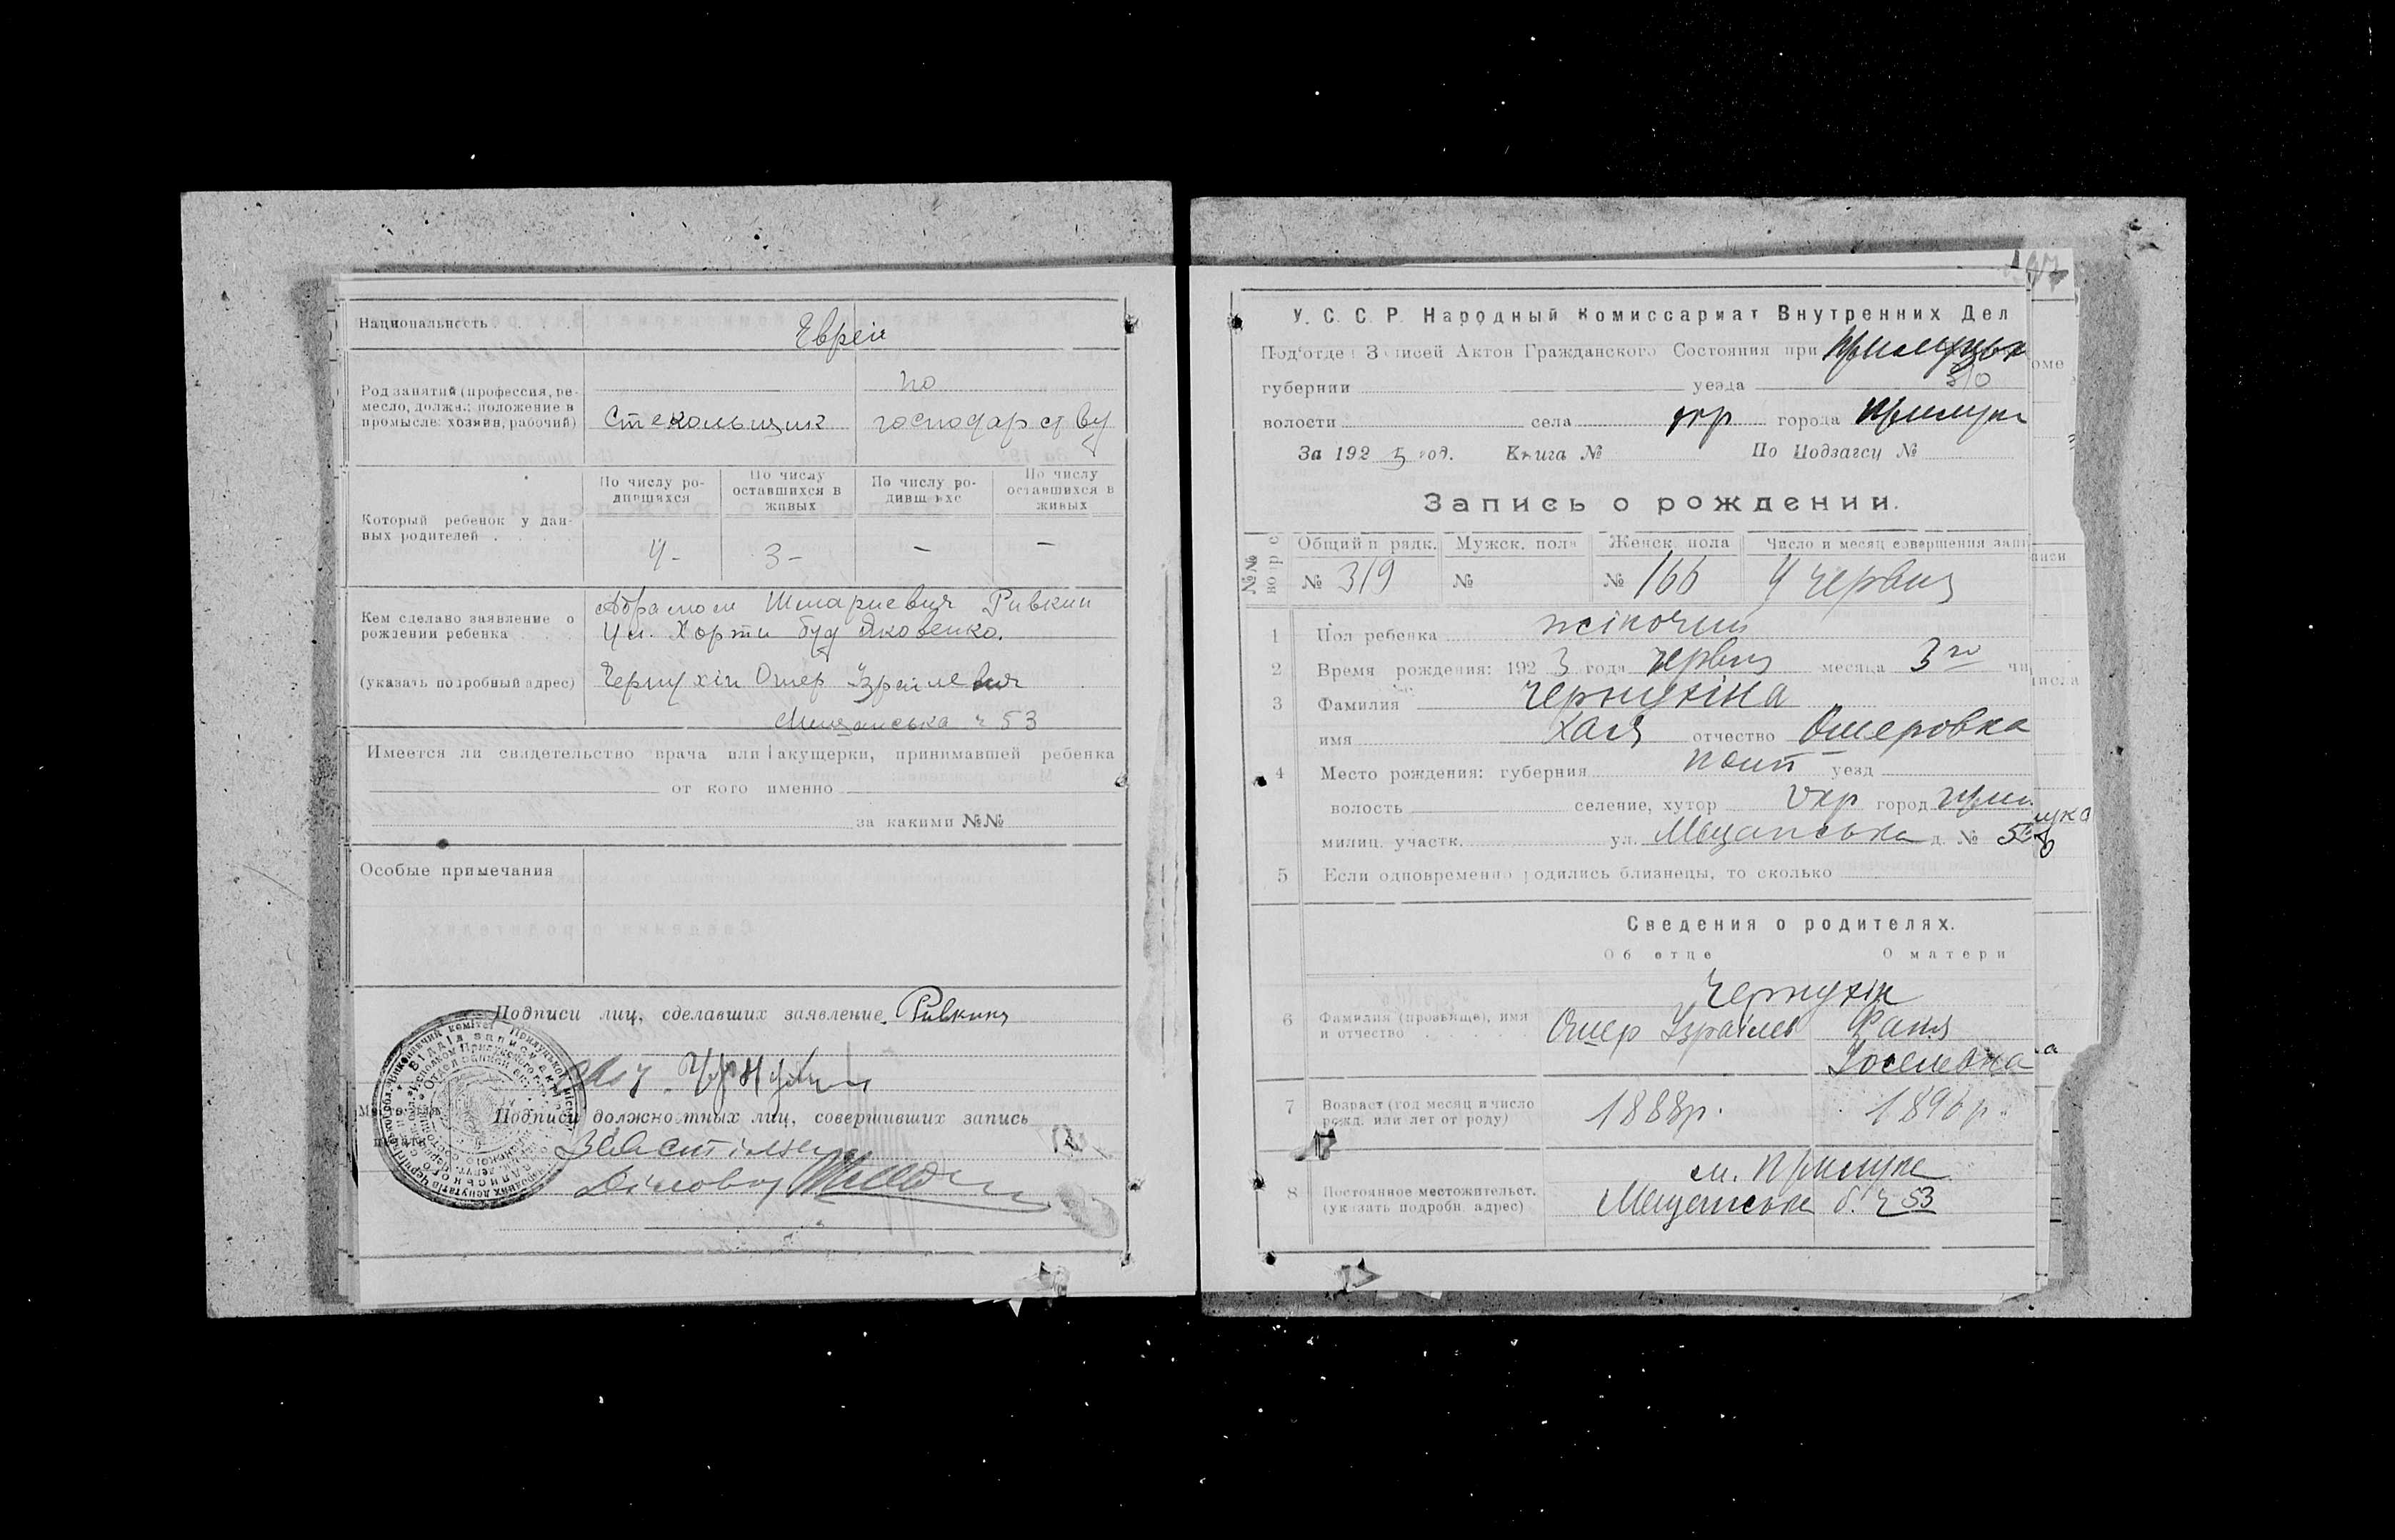 Национальность
Еврей
Род занятий (профессия, ре-
месло, должн.; положение в
промысле: хозяин, рабочий)
Стекольщик
по
господарству
Который ребенок у дан-
ных родителей
По числу ро-
дившихся
По числу
оставшихся в
живых
По числу ро-
дивш хс
По числу
оставшихся в
живых
4 -
3 -
-
-
Кем сделано заявление о
рождении ребенка
(указать подробный адрес)
Абрамом Шмариевич Ривкин
Ул. Хорти буд Яковенко.
Чернухін Ошер Ізраілевич
Мищанська ч 53
Имеется ли свидетельство врача или акушерки, принимавшей ребенка
от кого именно
за какими №№
Особые примечания
Подписи лиц, сделавших заявление. Ривкин
Подписи должностных лиц, совершивших запись
Діловод
У. С. С. Р. Народный Комиссариат Внутренних Дел
Подотдел Записей Актов Гражданского Состояния при
губернии уезда
волости села окр города Прилуки
За 192 5 год. Книга № По Подзагсу №
Запись о рождении.
№№
Общий п рядк. Мужск. пола Женск пола Число и месяц совершения запи
№ 319 № № 166 4 червня
1 Пол ребенка жіночий
2 Время рождения: 192 3 года червня месяца 3го чи
3 Фамилия Чернухіна
имя Хая отчество Ошеровна
4 Место рождения: губерния уезд
волость селение, хутор окр город Прилука
милиц. участк. ул. Мещанська д. № 53
5 Если одновременно родились близнецы, то сколько
Сведения о родителях.
Об отце О матери
6 Фамилия (прозвище), имя
и отчество
Чернухін
Ошер Ізраілев Фаня
Іоселевна
7 Возраст (год месяц и число
рожд. или лет от роду)
1888р. 1896р.
8 Постоянное местожительст.
(указать подробн. адрес)
м. Прилуке
Мещанська б. ч 53